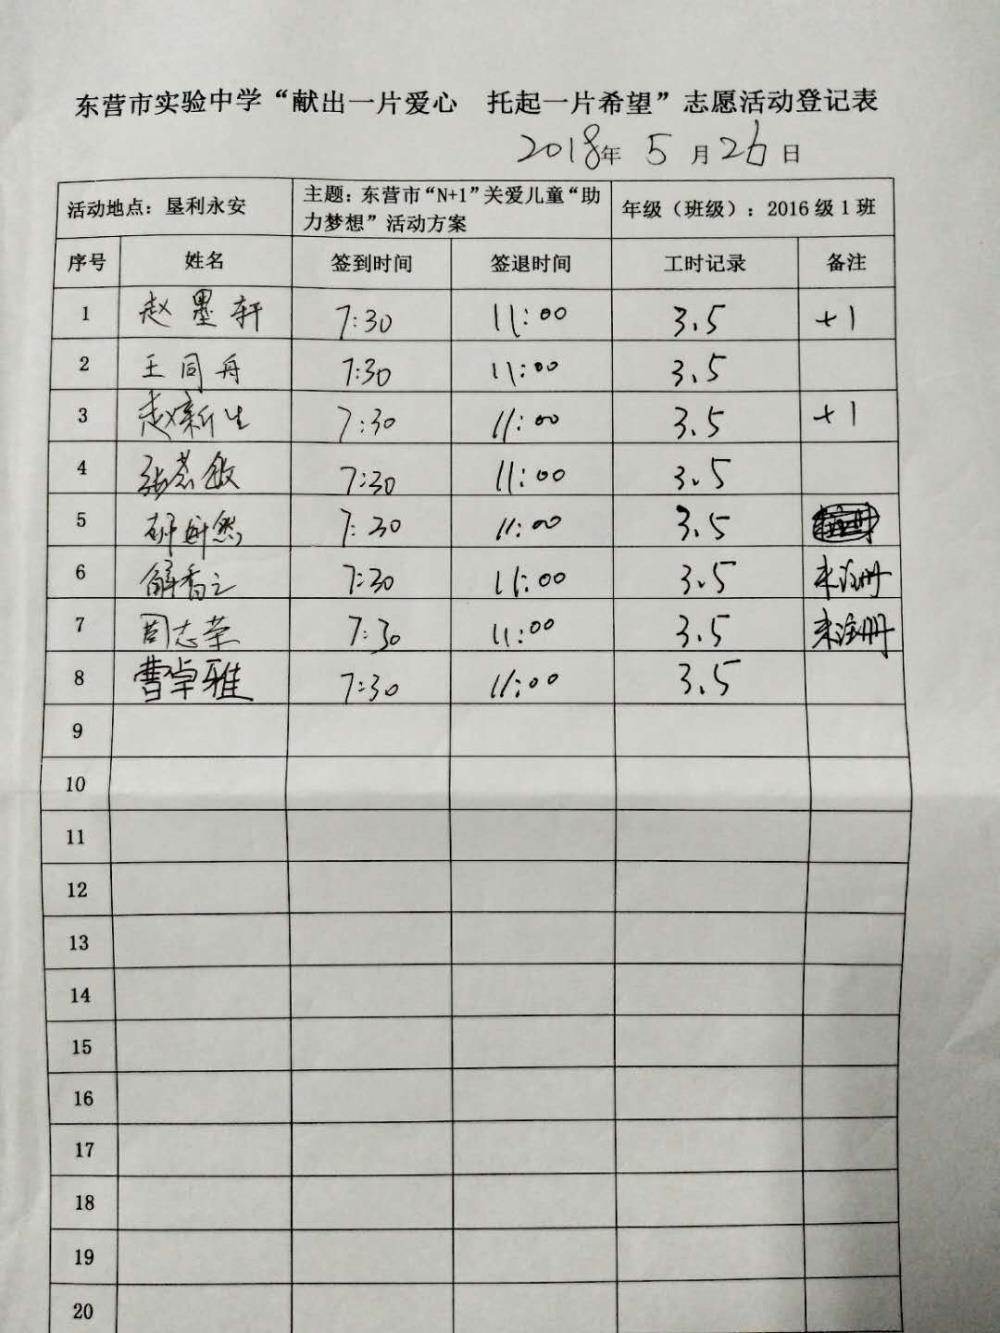 东营市实验中学“献出一片爱心 托起一片希望”志愿活动登记表
2018年 5 月 26 日
活动地点：垦利永安 主题：东营市“N+1”关爱儿童“助力梦想”活动方案 年级（班级）：2016 级 1 班
序号 姓名 签到时间 签退时间 工时记录 备注
1 赵墨轩 7:30 11:00 3.5 +1
2 王同舟 7:30 11:00 3.5
3 赵新生 7:30 11:00 3.5 +1
4 7:30 11:00 3.5
5 7:30 11:00 3.5
6 解香之 7:30 11:00 3.5 未注册
7 周志荣 7:30 11:00 3.5 未注册
8 曹卓雅 7:30 11:00 3.5
9
10
11
12
13
14
15
16
17
18
19
20